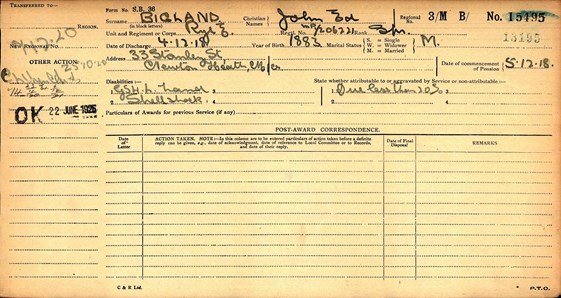 TRANSFERRED TO—
Form No. S.B. 36
Surname (in block letters) BIGLAND Christian Names John Ed Regional No. 3/M B/ No. 15495
REGION. Unit and Regiment or Corps Regtl. No. Rank Spr. 15195
NEW REGIONAL No. Date of Discharge 4.12.18 Year of Birth 1883 Marital Status S. = Single W. = Widower M. = Married M.
7.7.20
33 Stanley St.
Newton Heath, M/cr Date of commencement of Pension 5.12.18.
OTHER ACTION. 23.10.20
Disabilities: State whether attributable to or aggravated by Service or non-attributable:
G.S.W. L. Hand Due less than 20%
Shell shock
OK 22 JUNE 1925 Particulars of Awards for previous Service (if any)
POST-AWARD CORRESPONDENCE.
Date of Letter ACTION TAKEN. NOTE:—In this column are to be entered particulars of action taken before a definite reply can be given, e.g., date of acknowledgment, date of reference to Local Committee or to Records, and date of their reply. Date of Final Disposal REMARKS
C & E Ltd. P.T.O.